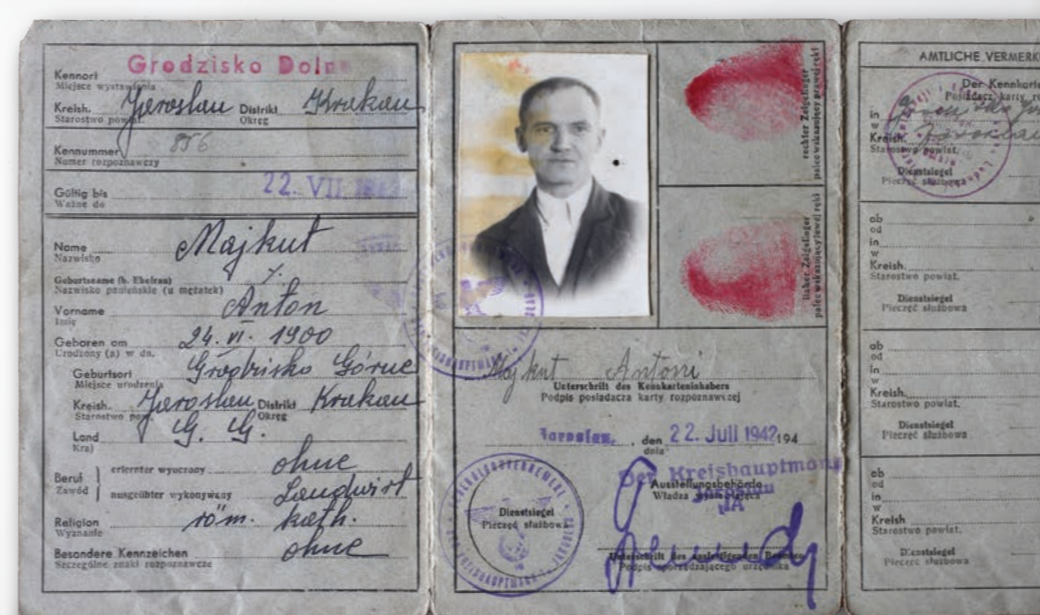 Kennort Grodzisko Doln
Miejsce wystawienia
Kreish. Jaroslau Distrikt Krakau
Starostwo powiat. Okręg
Kennummer 856
Numer rozpoznawczy
Gültig bis 22. VII.
Ważne do
Name Majkut
Nazwisko
Geburtsname (b. Ehefrau)
Nazwisko panieńskie (u mężatek)
Vorname Anton
Imię
Geboren am 24. VI. 1900
Urodzony (a) w dn.
Geburtsort Grodzisko Górne
Miejsce urodzenia
Kreish. Jaroslau Distrikt Krakau
Starostwo pow. Okręg
Land G. G.
Kraj
Beruf
Zawód
erlernter wyuczony ohne
ausgeübter wykonywany Landwirt
Religion röm. kath.
Wyznanie
Besondere Kennzeichen ohne
Szczególne znaki rozpoznawcze
rechter Zeigefinger
palec wskazujący prawej ręki
linker Zeigefinger
palec wskazujący lewej ręki
Majkut Antoni
Unterschrift des Kennkarteninhabers
Podpis posiadacza karty rozpoznawczej
Jaroslau, den 22. Juli 1942 194
dnia
Der Kreishauptmann
Ausstellungsbehörde
Władza wystawiająca
Jaroslau
IA
Dienstsiegel
Pieczęć służbowa
Unterschrift des ausfertigenden Beamten
Podpis sporządzającego urzędnika
AMTLICHE VERMERK
Der Kennkarte
Posiadacz karty ro
in
w
Kreish. Jaroslau
Starostwo powiat.
Dienstsiegel
Pieczęć służbowa
ab
od
in
w
Kreish.
Starostwo powiat.
Dienstsiegel
Pieczęć służbowa
ab
od
in
w
Kreish.
Starostwo powiat.
Dienstsiegel
Pieczęć służbowa
ab
od
in
w
Kreish
Starostwo powiat.
Dienstsiegel
Pieczęć służbowa